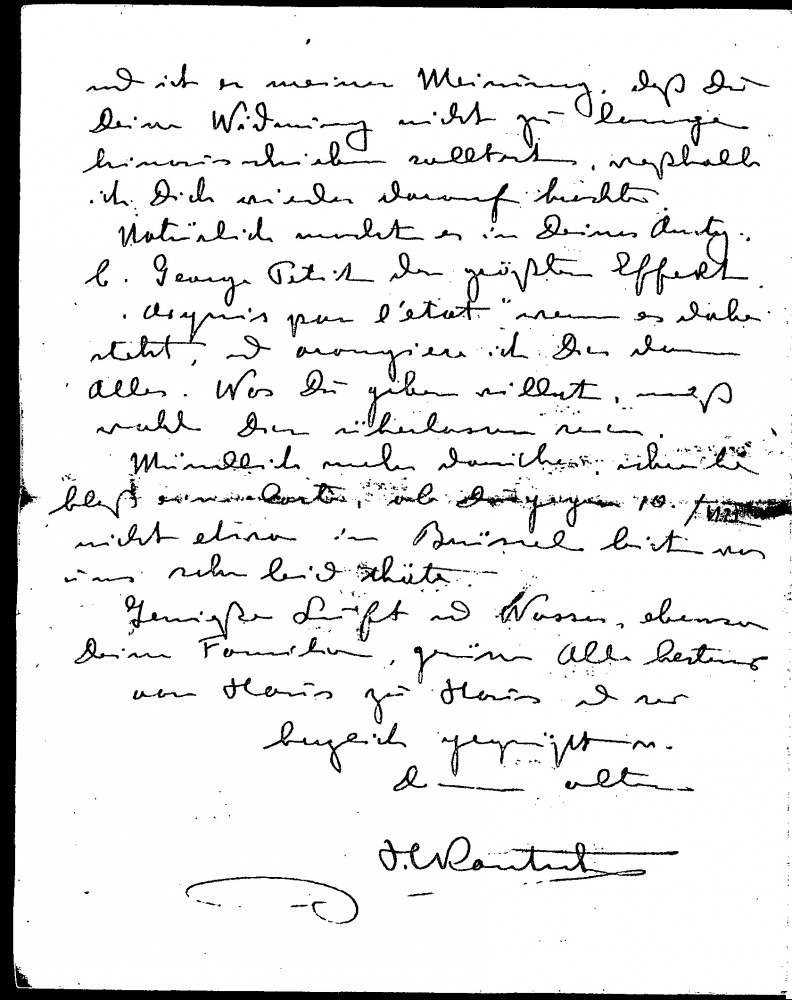 und ist er meiner Meinung, daß Du
Deine Widmung nicht zu lange
hinausschieben solltest, weßhalb
ich Dich wieder darauf
Natürlich macht es in Deiner
b. George Petit den größten Effekt
"acquis par l'état" wenn es dabei
steht, und arrangiere ich Dir dann
Alles. Was Du geben willst, muß
wohl Dir überlassen sein.
Mündlich mehr darüber, schreibe
bloß eine Karte, ob Du gegen 10.
nicht etwa in Brüssel bist was
uns sehr leid thäte.
Genieße Luft und Wasser, ebenso
Deine Familie, grüße Alle bestens
von Haus zu Haus und sei
herzlich gegrüßt v.
Deinem alten